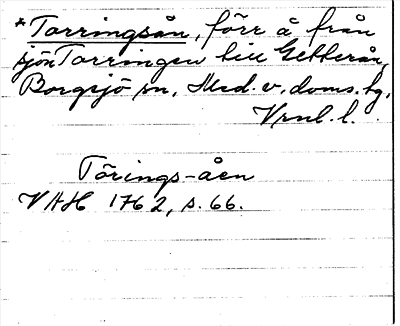 *Torringsån, förr å från
sjön Torringen till Getterån,
Borgsjö sn, Med. v. doms. tg,
Vrnl. l.
Törings-åen
VAH 1762, s. 66.